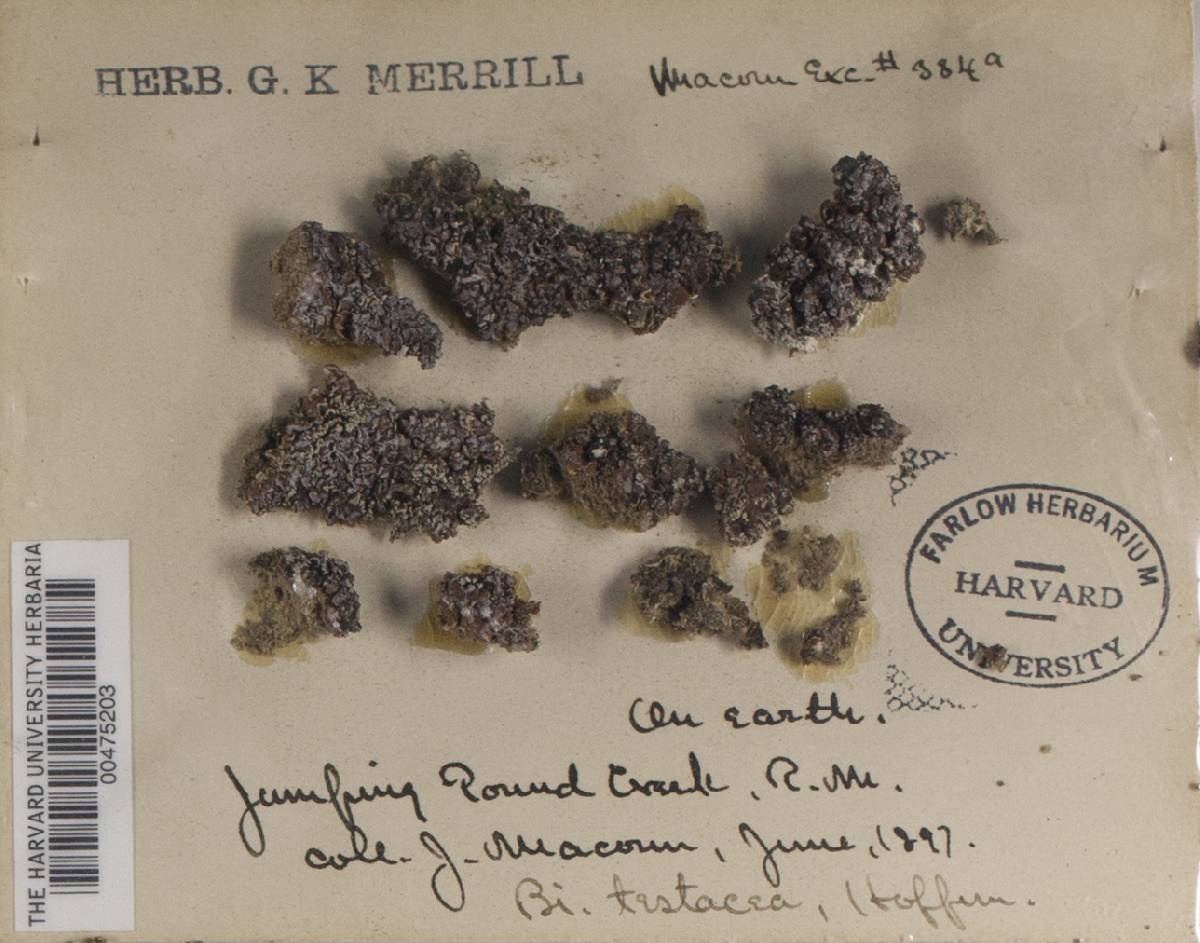 HERB. G. K MERRILL
Macoun Exc. # 334a
FARLOW HERBARIUM
HARVARD
UNIVERSITY
On earth.
Jumping Pound Creek, R.M.
coll. J. Macoun, June, 1897.
Bi. testacea, Hoffm.
THE HARVARD UNIVERSITY HERBARIA
00475203